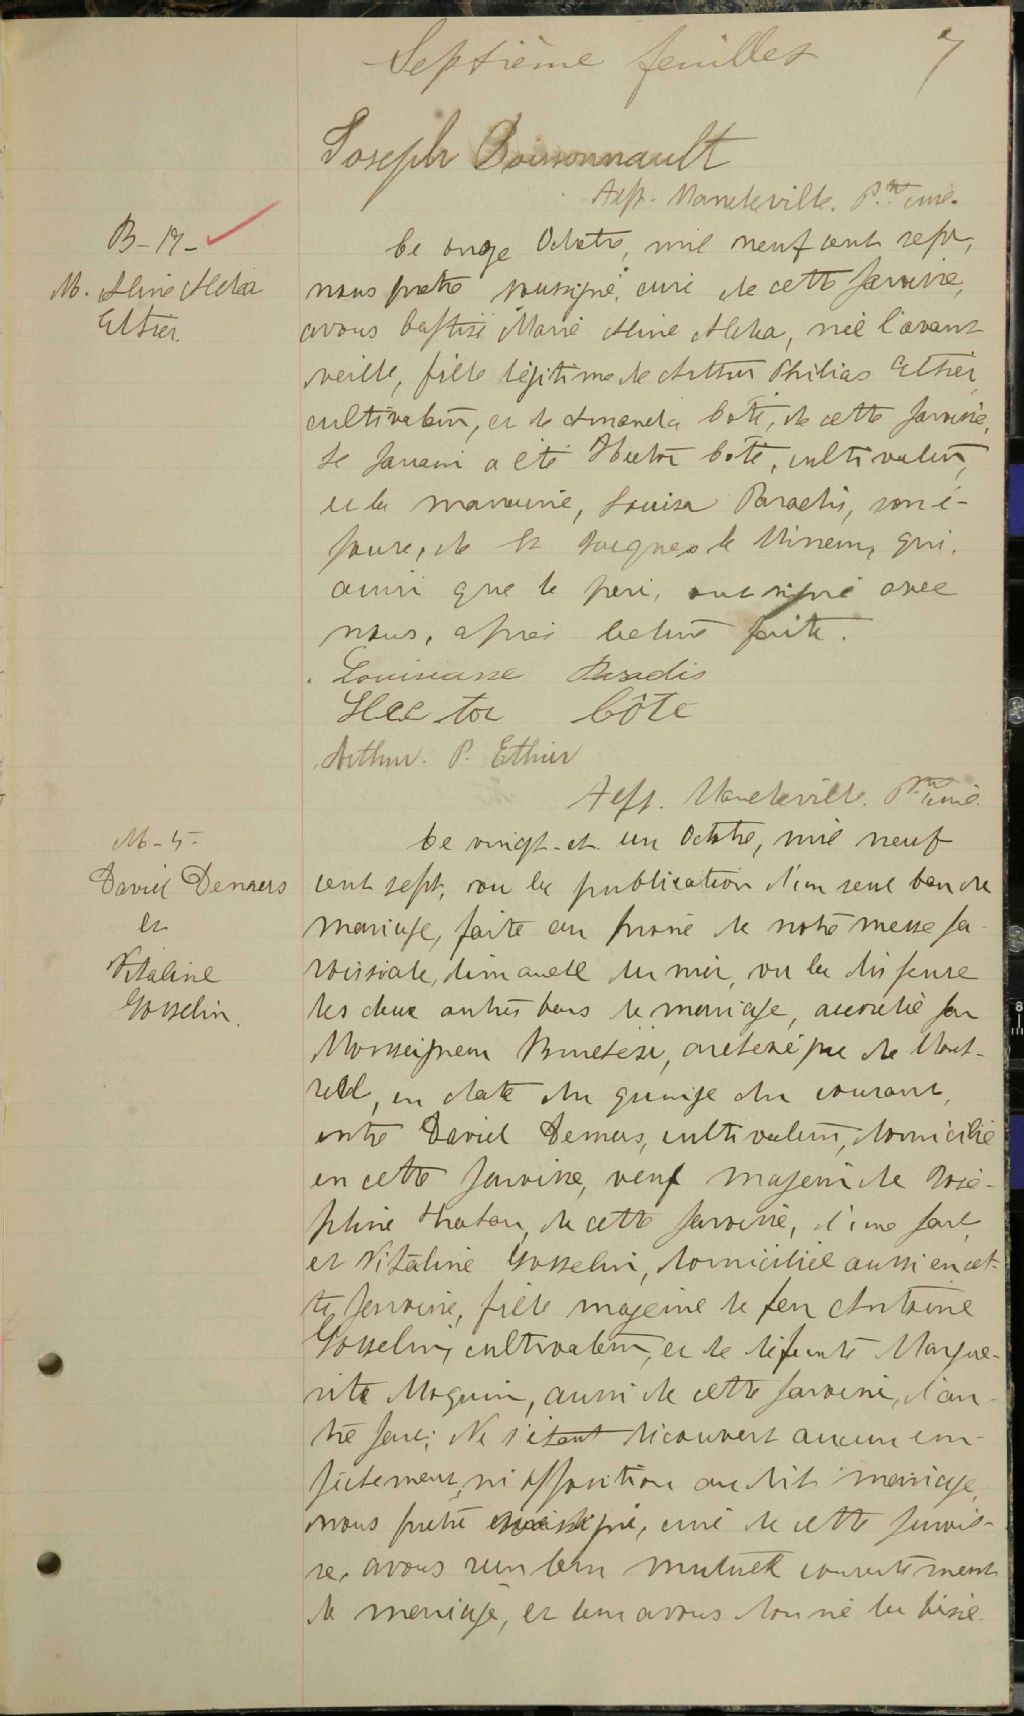 Septième feuillet 7
Joseph Boissonnault
Alph. Mandeville. Ptre curé.
B-17-
M. Aline Alda
Ethier.
Ce onze Octobre, mil neuf cent sept,
nous prêtre soussigné, curé de cette paroisse,
avons baptisé Marie Aline Alda, née l'avant
veille, fille légitime de Arthur Philias Ethier,
cultivateur, et de Amanda Côté, de cette paroisse.
Le parrain a été Hector Côté, cultivateur,
et la marraine, Louisa Paradis, son é-
pouse, de St Jacques le Mineur, qui,
ainsi que le père, ont signé avec
nous, après lecture faite.
Louisianne Paradis
Hector Côté
Arthur. P. Ethier
Alph. Mandeville. Ptre curé.
M-5-
David Demers
et
Vitaline
Gosselin.
Ce vingt-et-un Octobre, mil neuf
cent sept, vu la publication d'un seul ban de
mariage, faite au prône de notre messe pa-
roissiale, dimanche dernier, vu la dispense
des deux autres bans de mariage, accordée par
Monseigneur Bruchési, archevêque de Mont-
réal, en date du quinze du courant,
entre David Demers, cultivateur, domicilié
en cette paroisse, veuf majeur de José-
phine de cette paroisse, d'une part,
et Vitaline Gosselin, domiciliée aussi en cet-
te paroisse, fille majeure de feu Antoine
Gosselin, cultivateur, et de défunte Margue-
rite Moquin, aussi de cette paroisse, d'au-
tre part; Ne s'étant découvert aucun em-
pêchement, ni opposition au dit mariage,
nous prêtre soussigné, curé de cette parois-
se, avons reçu leur mutuel consentement
de mariage, et leur avons donné la béné-